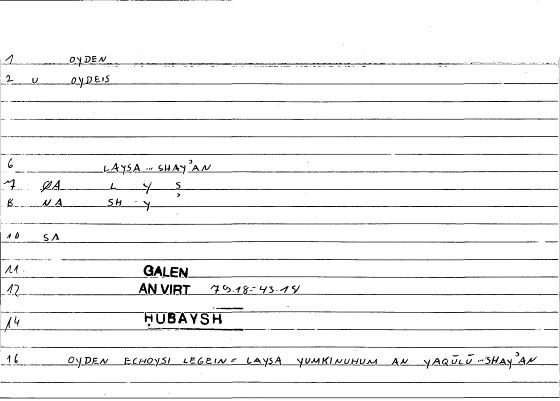 1 OYDEN
2 U OYDEIS
6 LAYSA ... SHAYʾAN
7 ØA L Y S
8 NA SH Y ʾ
10 SA
11 GALEN
12 AN VIRT 79.18 = 43.14
14 ḤUBAYSH
16 OYDEN ECHOYSI LEGEIN = LAYSA YUMKINUHUM AN YAQŪLŪ ... SHAYʾAN